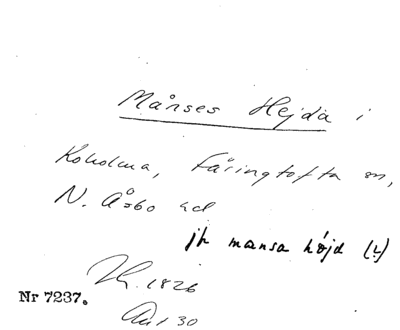 Månses Hejda i
Koholma, Fåringtofta sn,
N. Åsbo hd
jfr mansa höjd (!)
1826
Nr 7237.
30